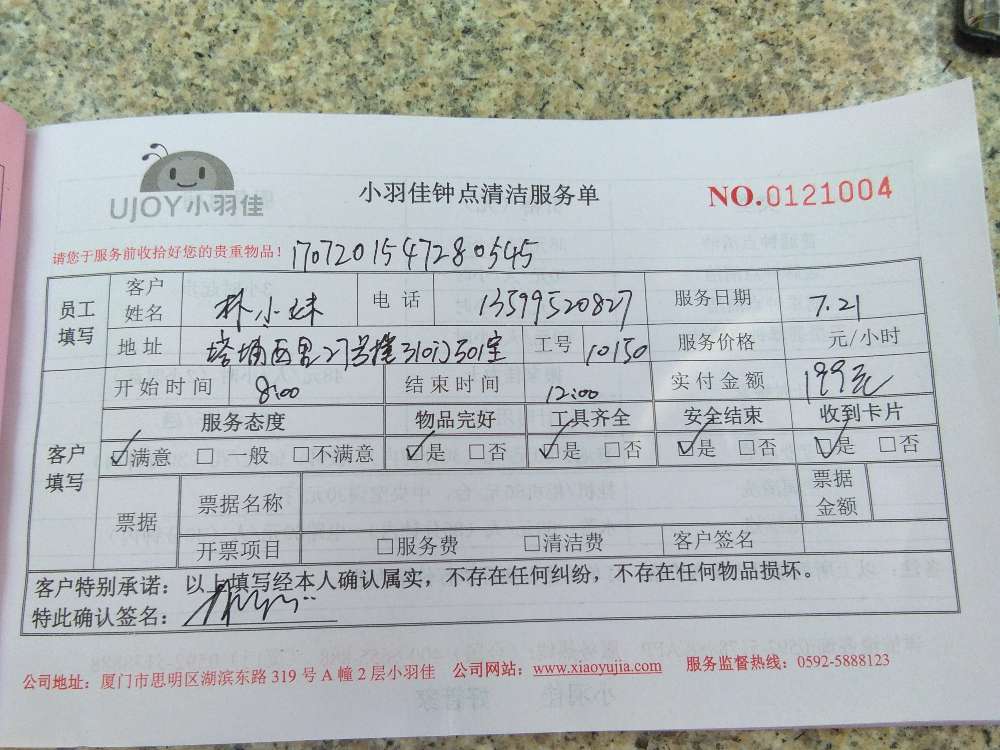 UJOY小羽佳
小羽佳钟点清洁服务单
NO.0121004
请您于服务前收拾好您的贵重物品！ 1707201547280545
员工填写 客户姓名 林小妹 电话 13599520827 服务日期 7.21
地址 塔埔西里27号楼310门501室 工号 10150 服务价格 元/小时
客户填写 开始时间 8:00 结束时间 12:00 实付金额 199元
服务态度 物品完好 工具齐全 安全结束 收到卡片
☑满意 □一般 □不满意 ☑是 □否 ☑是 □否 ☑是 □否 ☑是 □否
票据 票据名称 票据金额
开票项目 □服务费 □清洁费 客户签名
客户特别承诺：以上填写经本人确认属实，不存在任何纠纷，不存在任何物品损坏。
特此确认签名：
公司地址：厦门市思明区湖滨东路 319 号 A 幢 2 层小羽佳 公司网站：www.xiaoyujia.com 服务监督热线：0592-5888123